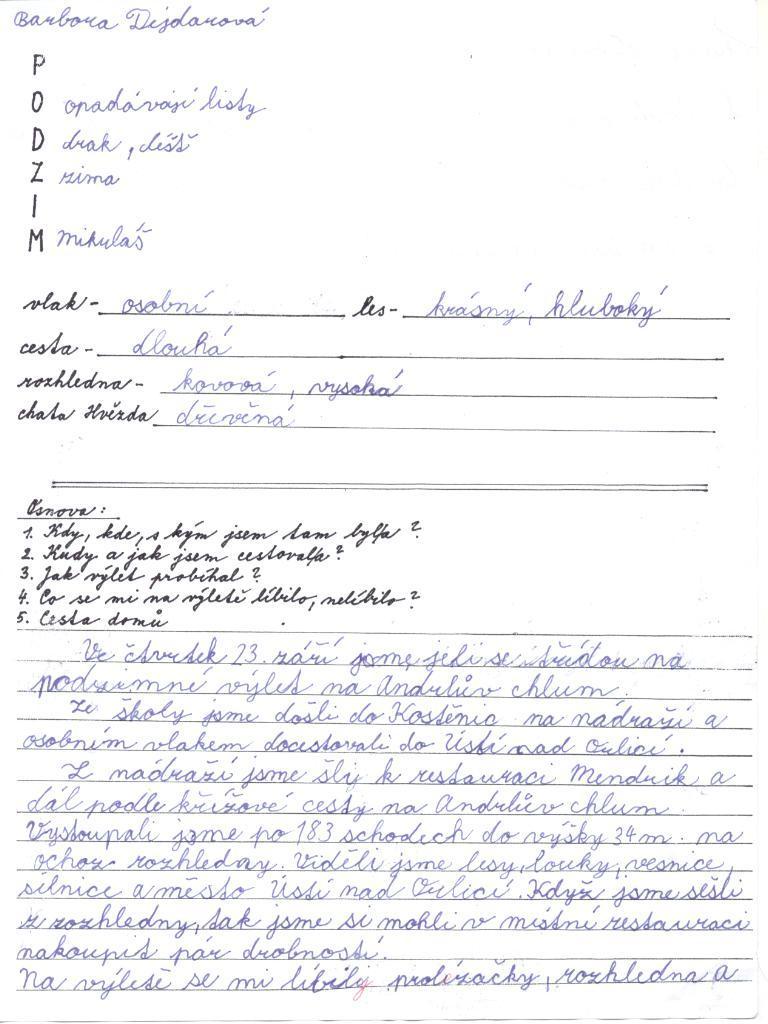 Barbora Dejdarová
P
O opadávají listy
D drak, déšť
Z zima
I
M mikuláš
vlak - osobní les - krásný, hluboký
cesta - dlouhá
rozhledna - kovová, vysoká
chata Hvězda dřevěná
Osnova:
1. Kdy, kde, s kým jsem tam byl/a?
2. Kudy a jak jsem cestoval/a?
3. Jak výlet probíhal?
4. Co se mi na výletě líbilo, nelíbilo?
5. Cesta domů
Ve čtvrtek 23. září jsme jeli se třídou na
podzimné výlet na Andrlův chlum.
Ze školy jsme došli do Kostěnic na nádraží a
osobním vlakem docestovali do Ústí nad Orlicí.
Z nádraží jsme šli k restauraci Mendrik a
dál podle křížové cesty na Andrlův chlum.
Vystoupali jsme po 183 schodech do výšky 34 m na
ochoz rozhledny. Viděli jsme lesy, louky, vesnice,
silnice a město Ústí nad Orlicí. Když jsme sešli
z rozhledny, tak jsme si mohli v místní restauraci
nakoupit pár drobností.
Na výletě se mi líbily prolézačky, rozhledna a